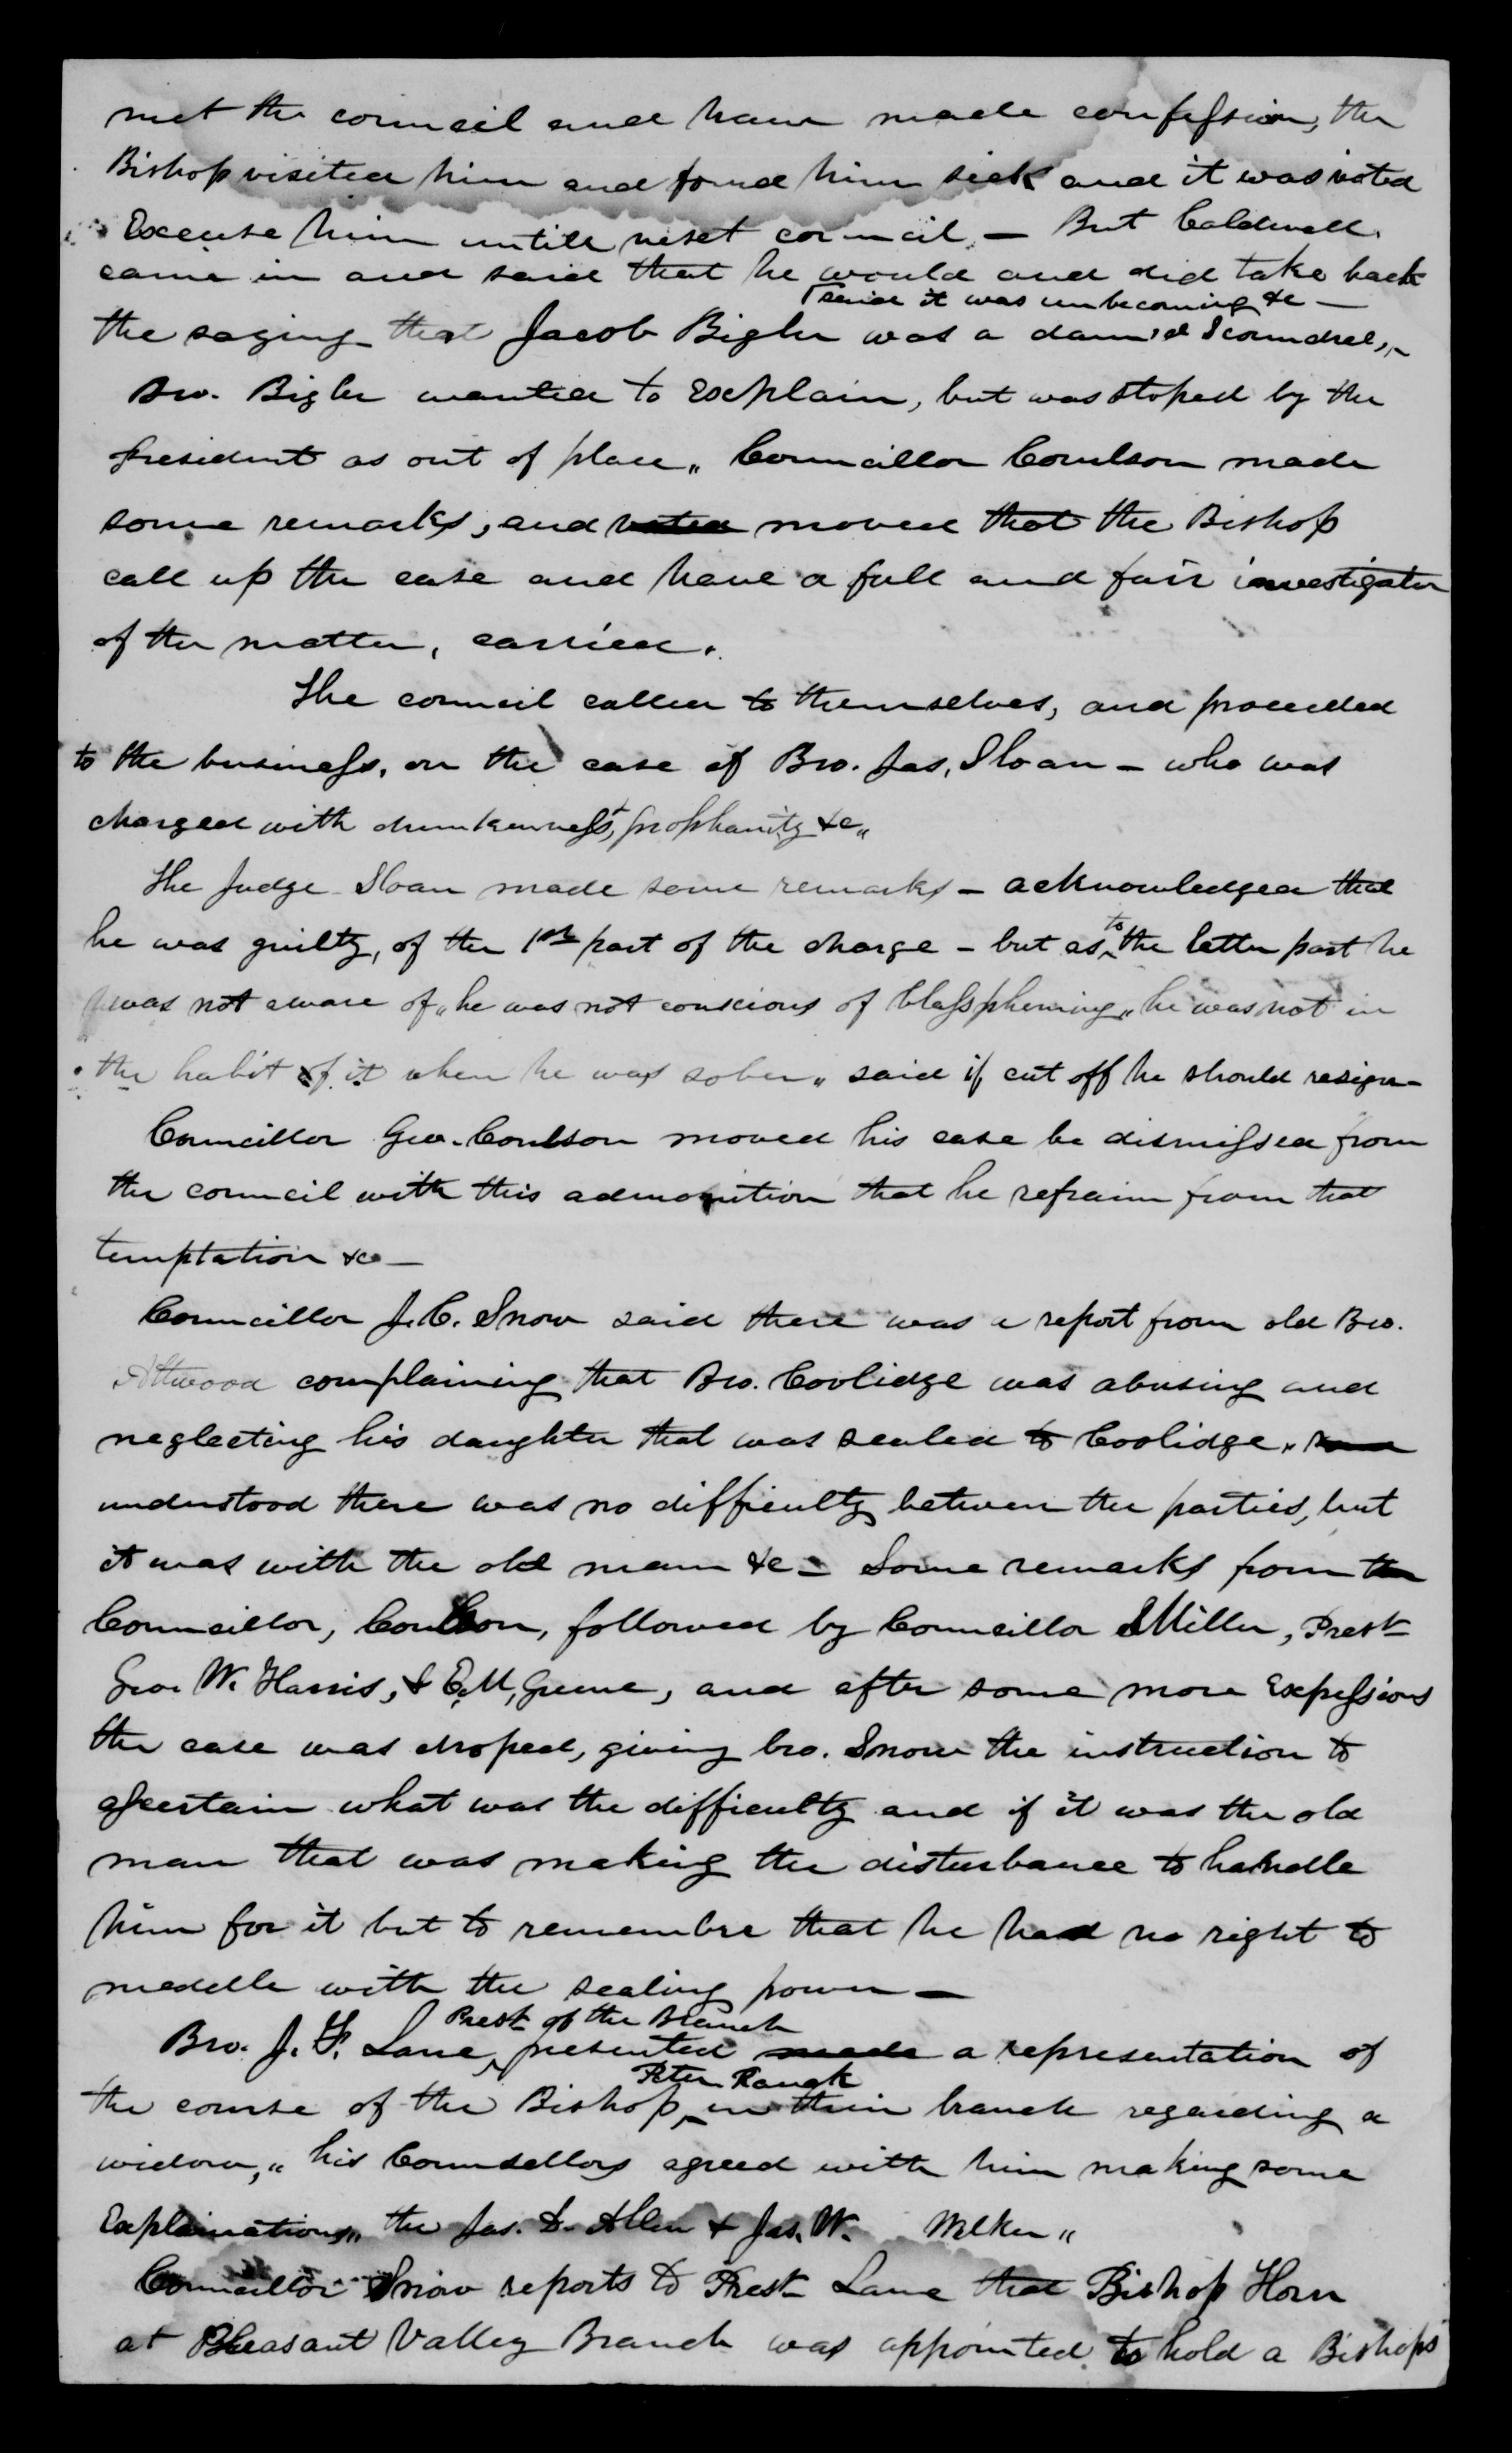 met the council and have made confession, the
Bishop visited him and found him sick and it was voted
Excuse him untill next council, — But Caldwell
came in and said that he would and did take back
said it was unbecoming &c —
the saying that Jacob Bigler was a damn'd Scoundrel,,
Bro. Bigler wanted to Explain, but was stoped by the
president as out of place,, Councillor Coulson made
some remarks, and voted moved that the Bishop
call up the case and have a full and fair investigation
of the matter, carried.
The council called to themselves, and proceeded
to the business, on the case of Bro. Jas, Sloan — who was
charged with drunkenness, prophanity &c,,
The Judge Sloan made some remarks — acknowledged that
he was guilty, of the 1st part of the charge — but as to the latter part he
was not aware of,, he was not conscious of blasspheming,, he was not in
the habit of it when he was sober,, said if cut off he should resign —
Councillor Geo. Coulson moved his case be dismissed from
the council with this admonition that he refrain from that
temptation &c —
Councillor J. C. Snow said there was a report from old Bro.
Attwood complaining that Bro. Coolidge was abusing and
neglecting his daughter that was sealed to Coolidge,,
understood there was no difficulty between the parties, but
it was with the old man &c — Some remarks from the
Councillor, Coulson, followed by Councillor Miller, Prest
Geo. W. Harris, & E. M, Greene, and after some more Expressions
the case was droped, giving bro. Snow the instruction to
assertain what was the difficulty and if it was the old
man that was making the disturbance to handle
him for it but to remembre that he had no right to
meddle with the sealing power —
Prest of the Branch
Bro. J. F. Lane, presented made a representation of
Peter
the course of the Bishop, in their branch regarding a
widow,,, his Counsellors agreed with him making some
Explainations,, the Jas. D. Allen & Jas. W. Wilken,,
Councillor Snow reports to Prest Lane that Bishop Horn
at Pleasant Valley Branch was appointed to hold a Bishops